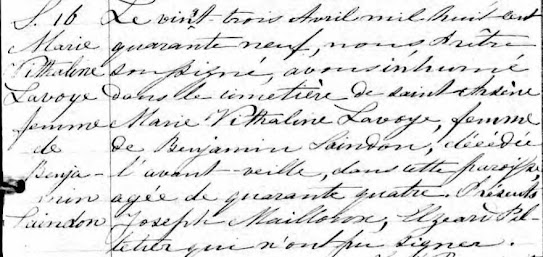 S. 16
Marie
Vithaline
Lavoye
femme
de
Benja-
min
Saindon
Le vingt-trois Avril mil huit cent
quarante neuf, nous Prêtre
soussigné, avons inhumé
dans le cimetière de saint Arsène
Marie Vithaline Lavoye, femme
de Benjamin Saindon, décédée
l'avant-veille, dans cette paroisse,
agée de quarante quatre. Présents
Joseph Mailloux, Elzeard Pel-
letier qui n'ont pu signer.